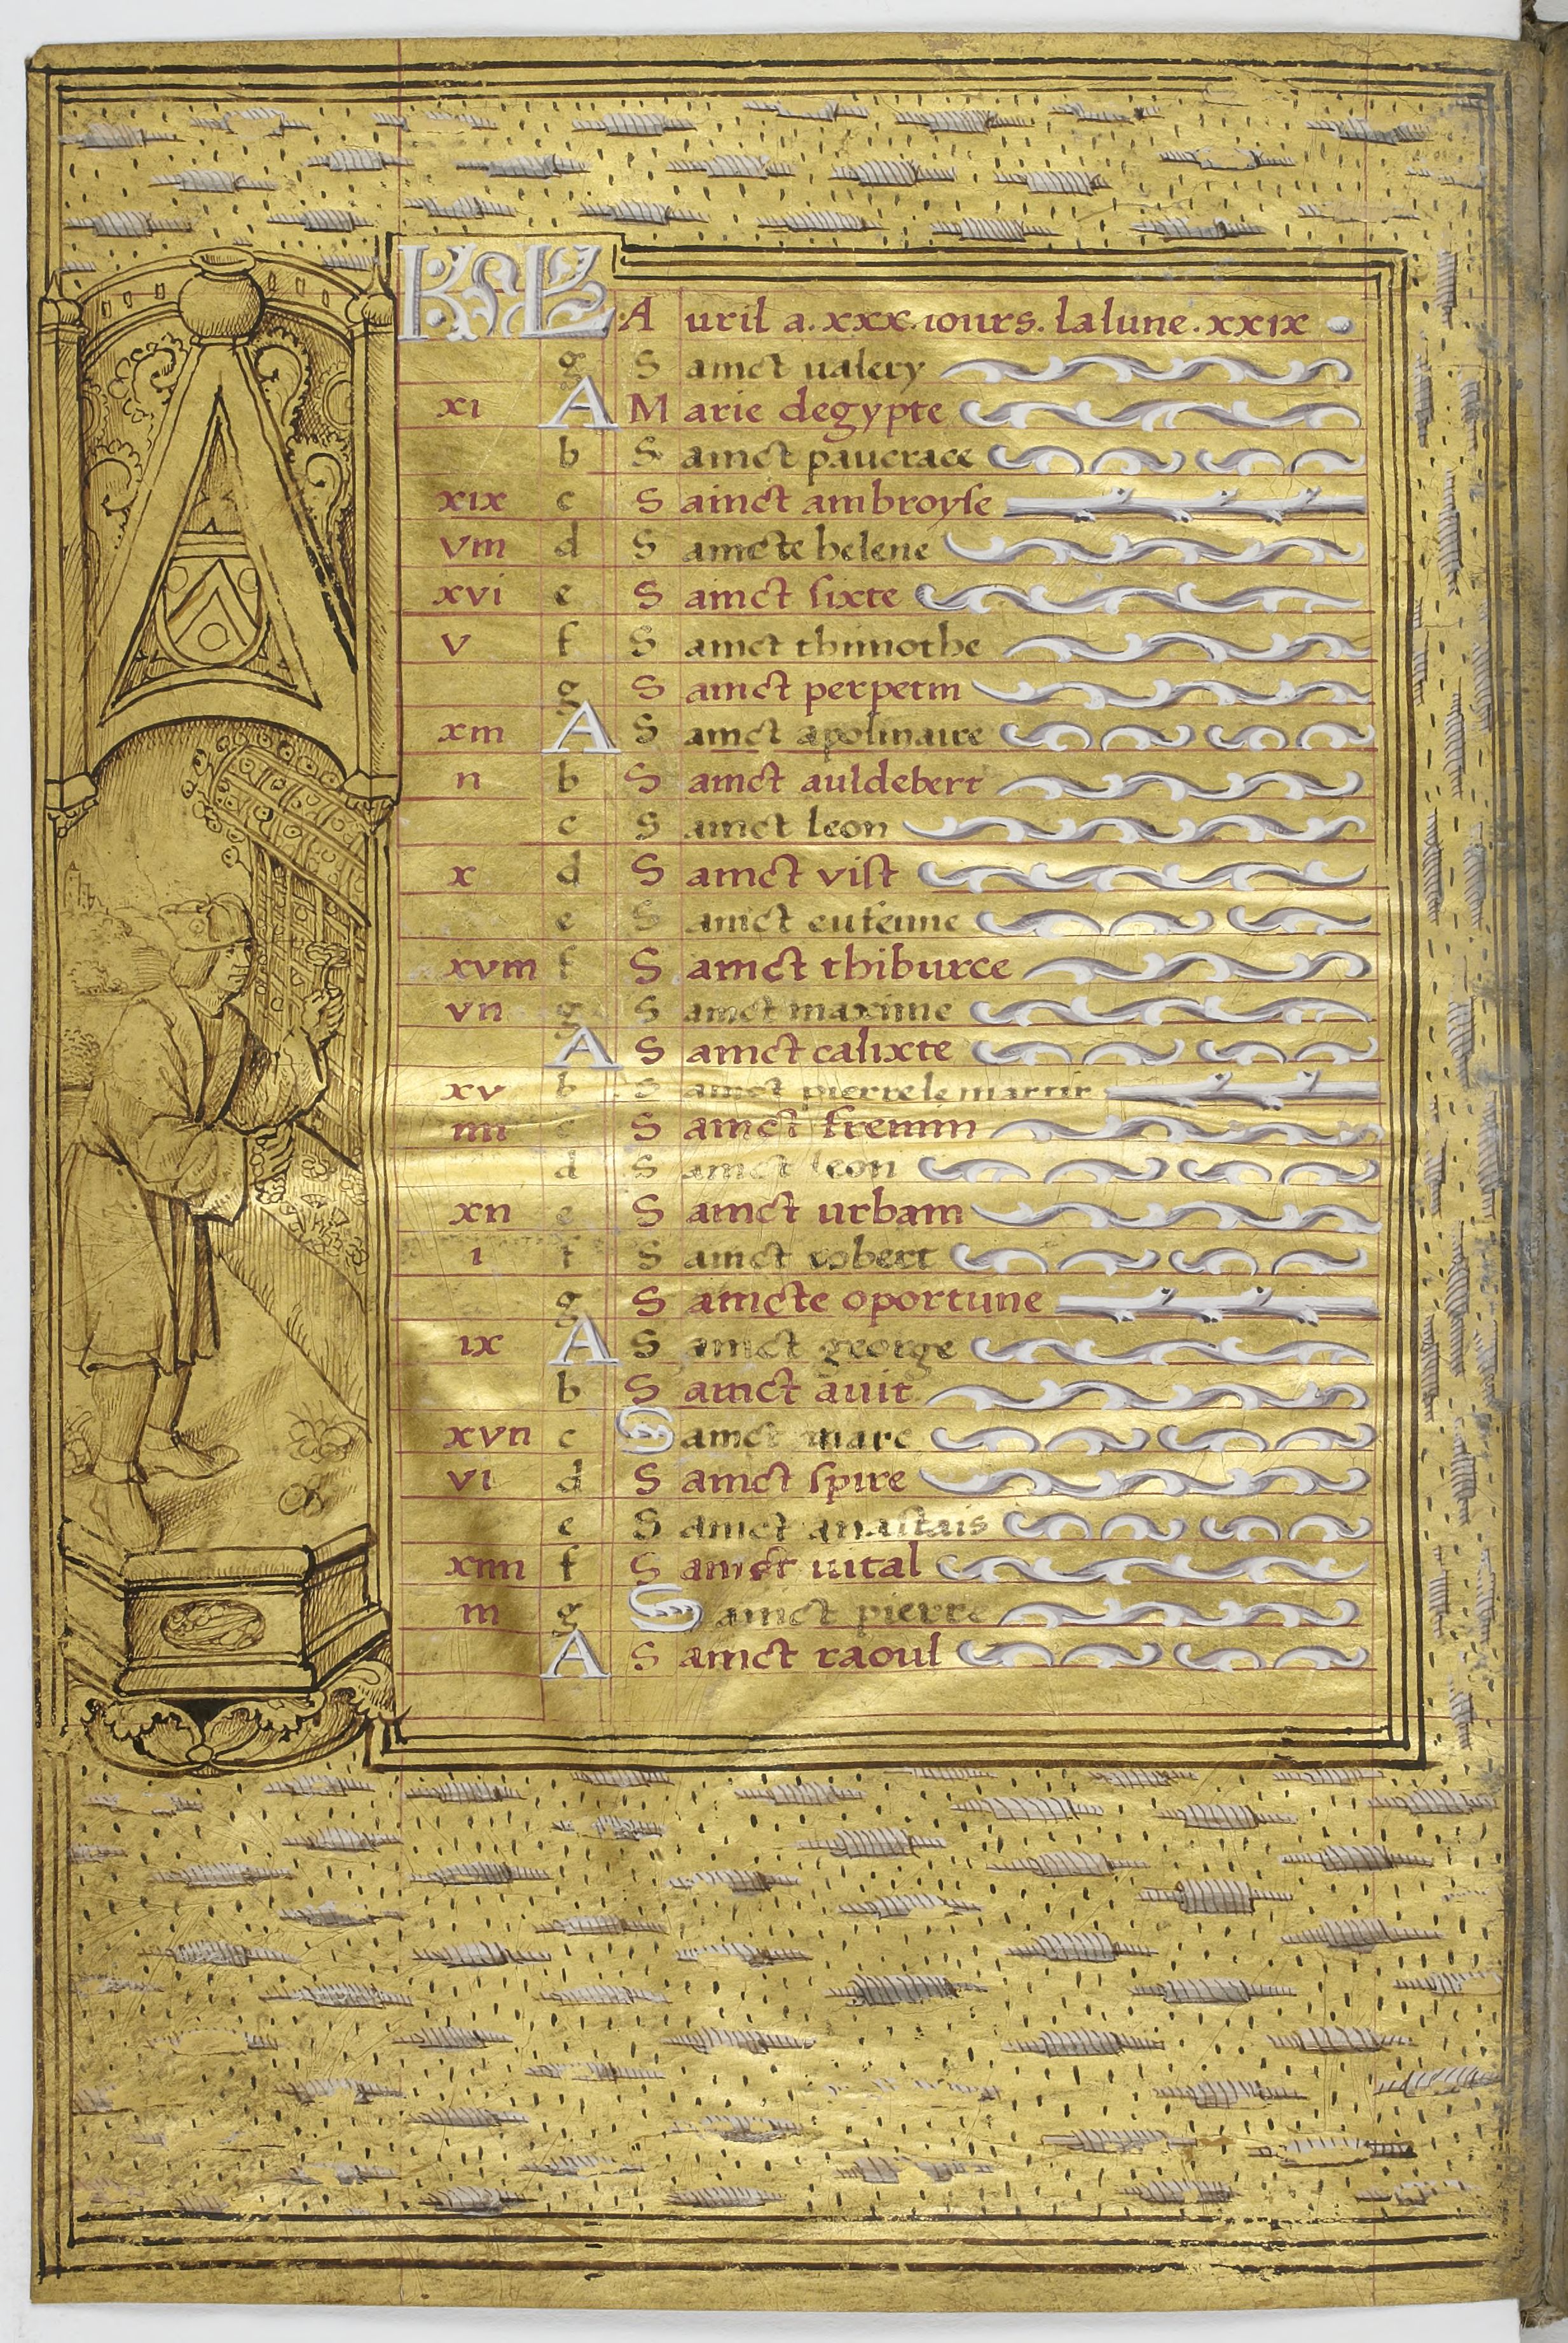 KL Auril a. xxx. iours. la lune. xxix
g Sainct ualery
xi A Marie degypte
b Sainct pancrace
xix c Sainct ambroyse
viii d Saincte helene
xvi e Sainct sixte
v f Sainct thimothe
g Sainct perpetin
xiii A Sainct apolinaire
ii b Sainct auldebert
c Sainct leon
x d Sainct vist
e Sainct eufenne
xviii f Sainct thiburce
vii g Sainct maxime
A Sainct calixte
xv b Sainct pierre le martir
iiii c Sainct fremin
d Sainct leon
xii e Sainct urbain
i f Sainct robert
g Saincte oportune
ix A Sainct george
b Sainct auit
xvii c Sainct marc
vi d Sainct spire
e Sainct anastais
xiiii f Sainct uital
iii g Sainct pierre
A Sainct raoul